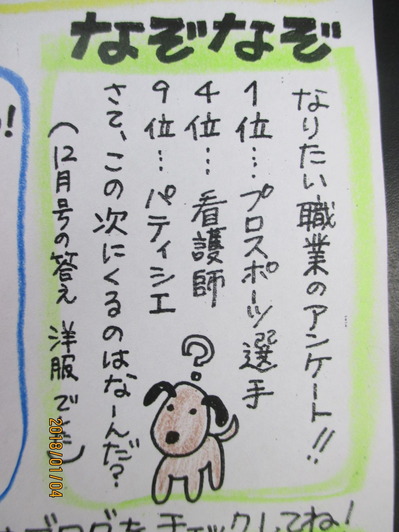 なぞなぞ
なりたい職業のアンケート!!
1位…プロスポーツ選手
4位…看護師
9位…パティシエ
さて、この次にくるのはなーんだ?
(12月号の答え 洋服でした)
?
ブログをチェックしてね!
2019/01/04